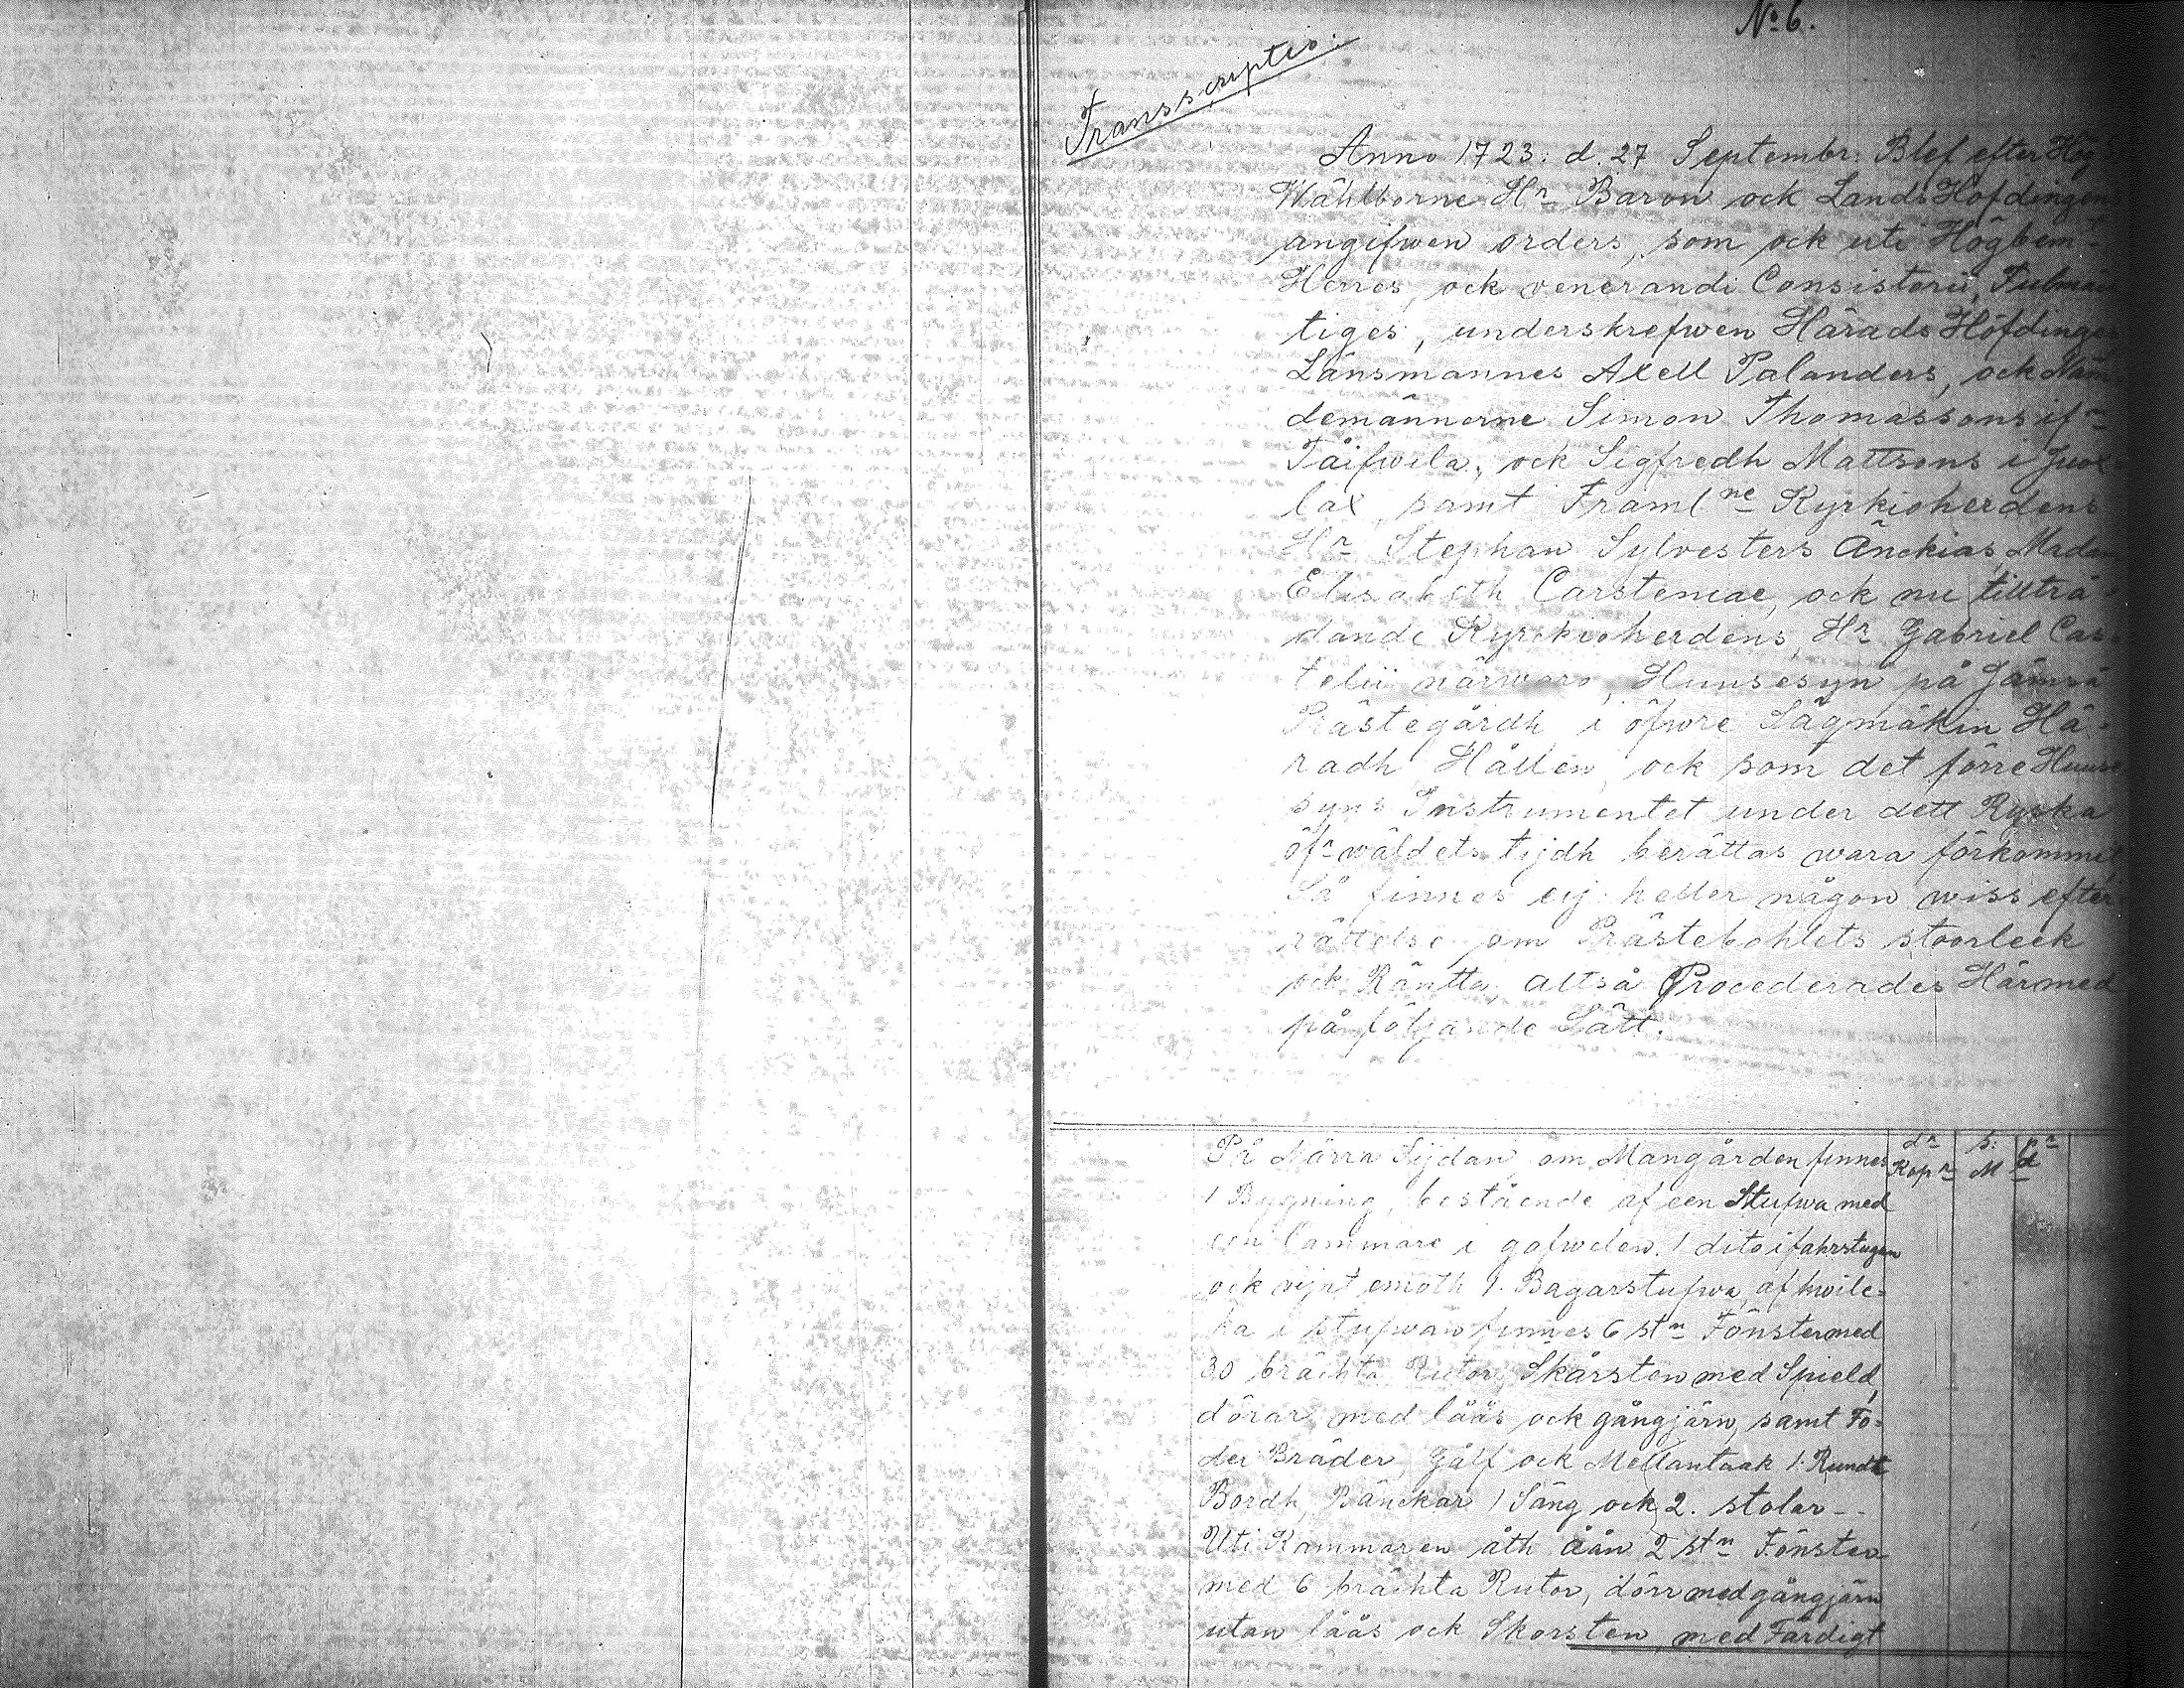 No 6.
Transscriptio.
Anno 1723. d. 27 Septembr. Blef efter Hög
Wählborne Hr Baron ock Lands Höfdingens
angifwen orders, som ock uti Högbemt
Herres, ock venerandi Consistorii, Fulmäc
tiges, underskrefwen Härads Höfdinges
Länsmannes Axell Palanders, ock Näm
demännerne Simon Thomassons ifn
Tåifwila, ock Sigfredh Mattsons i Juox
lax, samt Framlne Kyrkioherdens
Hr Stephan Sylvesters Änckias, Madam
Elisabeth Carsteniae, ock nu tillträ-
dande Kyrckioherdens, Hr Gabriel Cas-
telii närwaro, Huusesyn på Jämsä
Prästegårdh i öfwre Sägmäkin Hä-
radh Hållen, ock som det förre Huuse
syns Instrumentet under dett Ryska
öfrwäldets tijdh berättas wara förkommit
Så finnes eij heller någon wiss efter
rättelse om Prästebohlets stoorleek
ock Räntta, altså Procederades Härmed
på följande Sätt.
På Norra Sijdan om Mangården finnes
dr Kopr
S. M
pr d
1 Bygning, bestående af een Stufwa med
een Cammare i gafwelen. 1 dito i fahrstugan
ock vijst emoth 1. Bagarstufwa, af hwilc-
ka i stufwan finnes 6 stn Fönster med
30 bräckta Rutor, Skårsten med Spield,
dörar med låås ock gångjärn, samt Fo-
der Bräder, Gålf ock Mellantaak 1. Rundt
Bordh, Bänckar 1 Säng ock 2. stolar --
Uti Kammaren åth åån 2 stn Fönster
med 6 bräckta Rutor, dörr med gångjärn
utan låås ock Skorsten med Färdigt